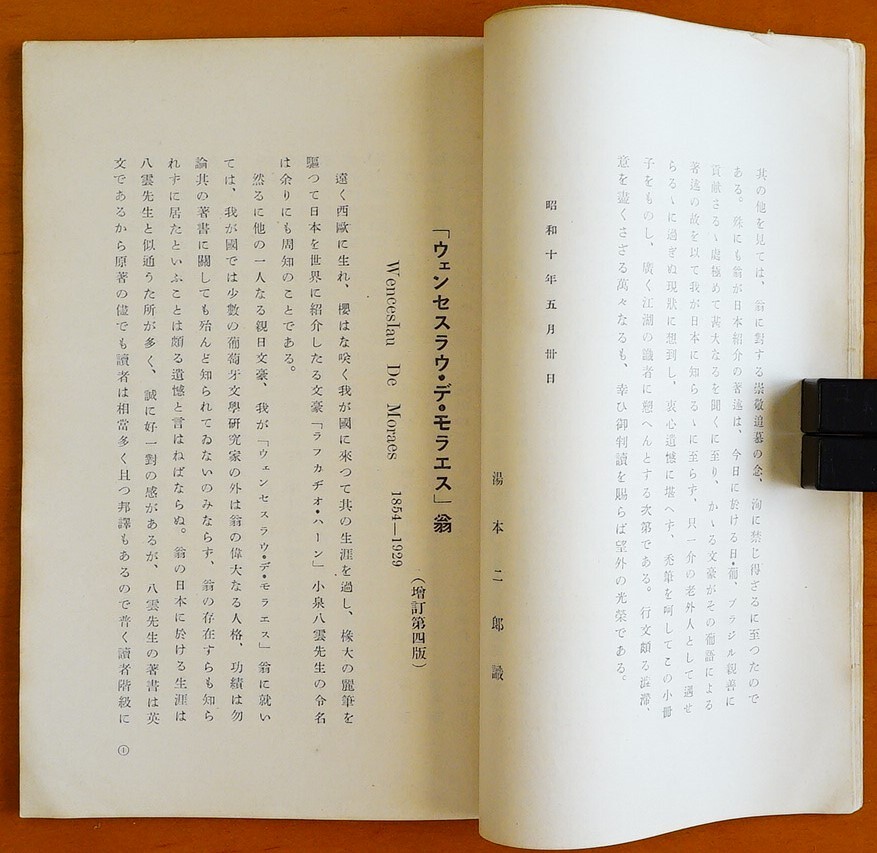 其の他を見ては、翁に對する崇敬追慕の念、洵に禁じ得ざるに至つたので
ある。殊にも翁が日本紹介の著述は、今日に於ける日・葡、ブラジル親善に
貢献さるゝ處極めて甚大なるを聞くに至り、かゝる文豪がその葡語による
著述の故を以て我が日本に知らるゝに至らず、只一介の老外人として遇せ
らるゝに過ぎぬ現狀に想到し、衷心遺憾に堪へず、禿筆を呵してこの小冊
子をものし、廣く江湖の識者に愬へんとする次第である。行文頗る澁滯、
意を盡くさざる萬々なるも、幸ひ御判讀を賜らば望外の光榮である。
昭和十年五月卅日
湯本二郎識
「ウェンセスラウ・デ・モラエス」翁
(增訂第四版)
Wenceslau De Moraes 1854—1929
遠く西歐に生れ、櫻はな咲く我が國に來つて其の生涯を過し、椽大の麗筆を
驅つて日本を世界に紹介したる文豪「ラフカヂオ・ハーン」小泉八雲先生の令名
は余りにも周知のことである。
然るに他の一人なる親日文豪、我が「ウェンセスラウ・デ・モラエス」翁に就い
ては、我が國では少數の葡萄牙文學研究家の外は翁の偉大なる人格、功績は勿
論其の著書に關しても殆んど知られてゐないのみならず、翁の存在すらも知ら
れずに居たといふことは頗る遺憾と言はねばならぬ。翁の日本に於ける生涯は
八雲先生と似通うた所が多く、誠に好一對の感があるが、八雲先生の著書は英
文であるから原著の儘でも讀者は相當多く且つ邦譯もあるので普く讀者階級に
①